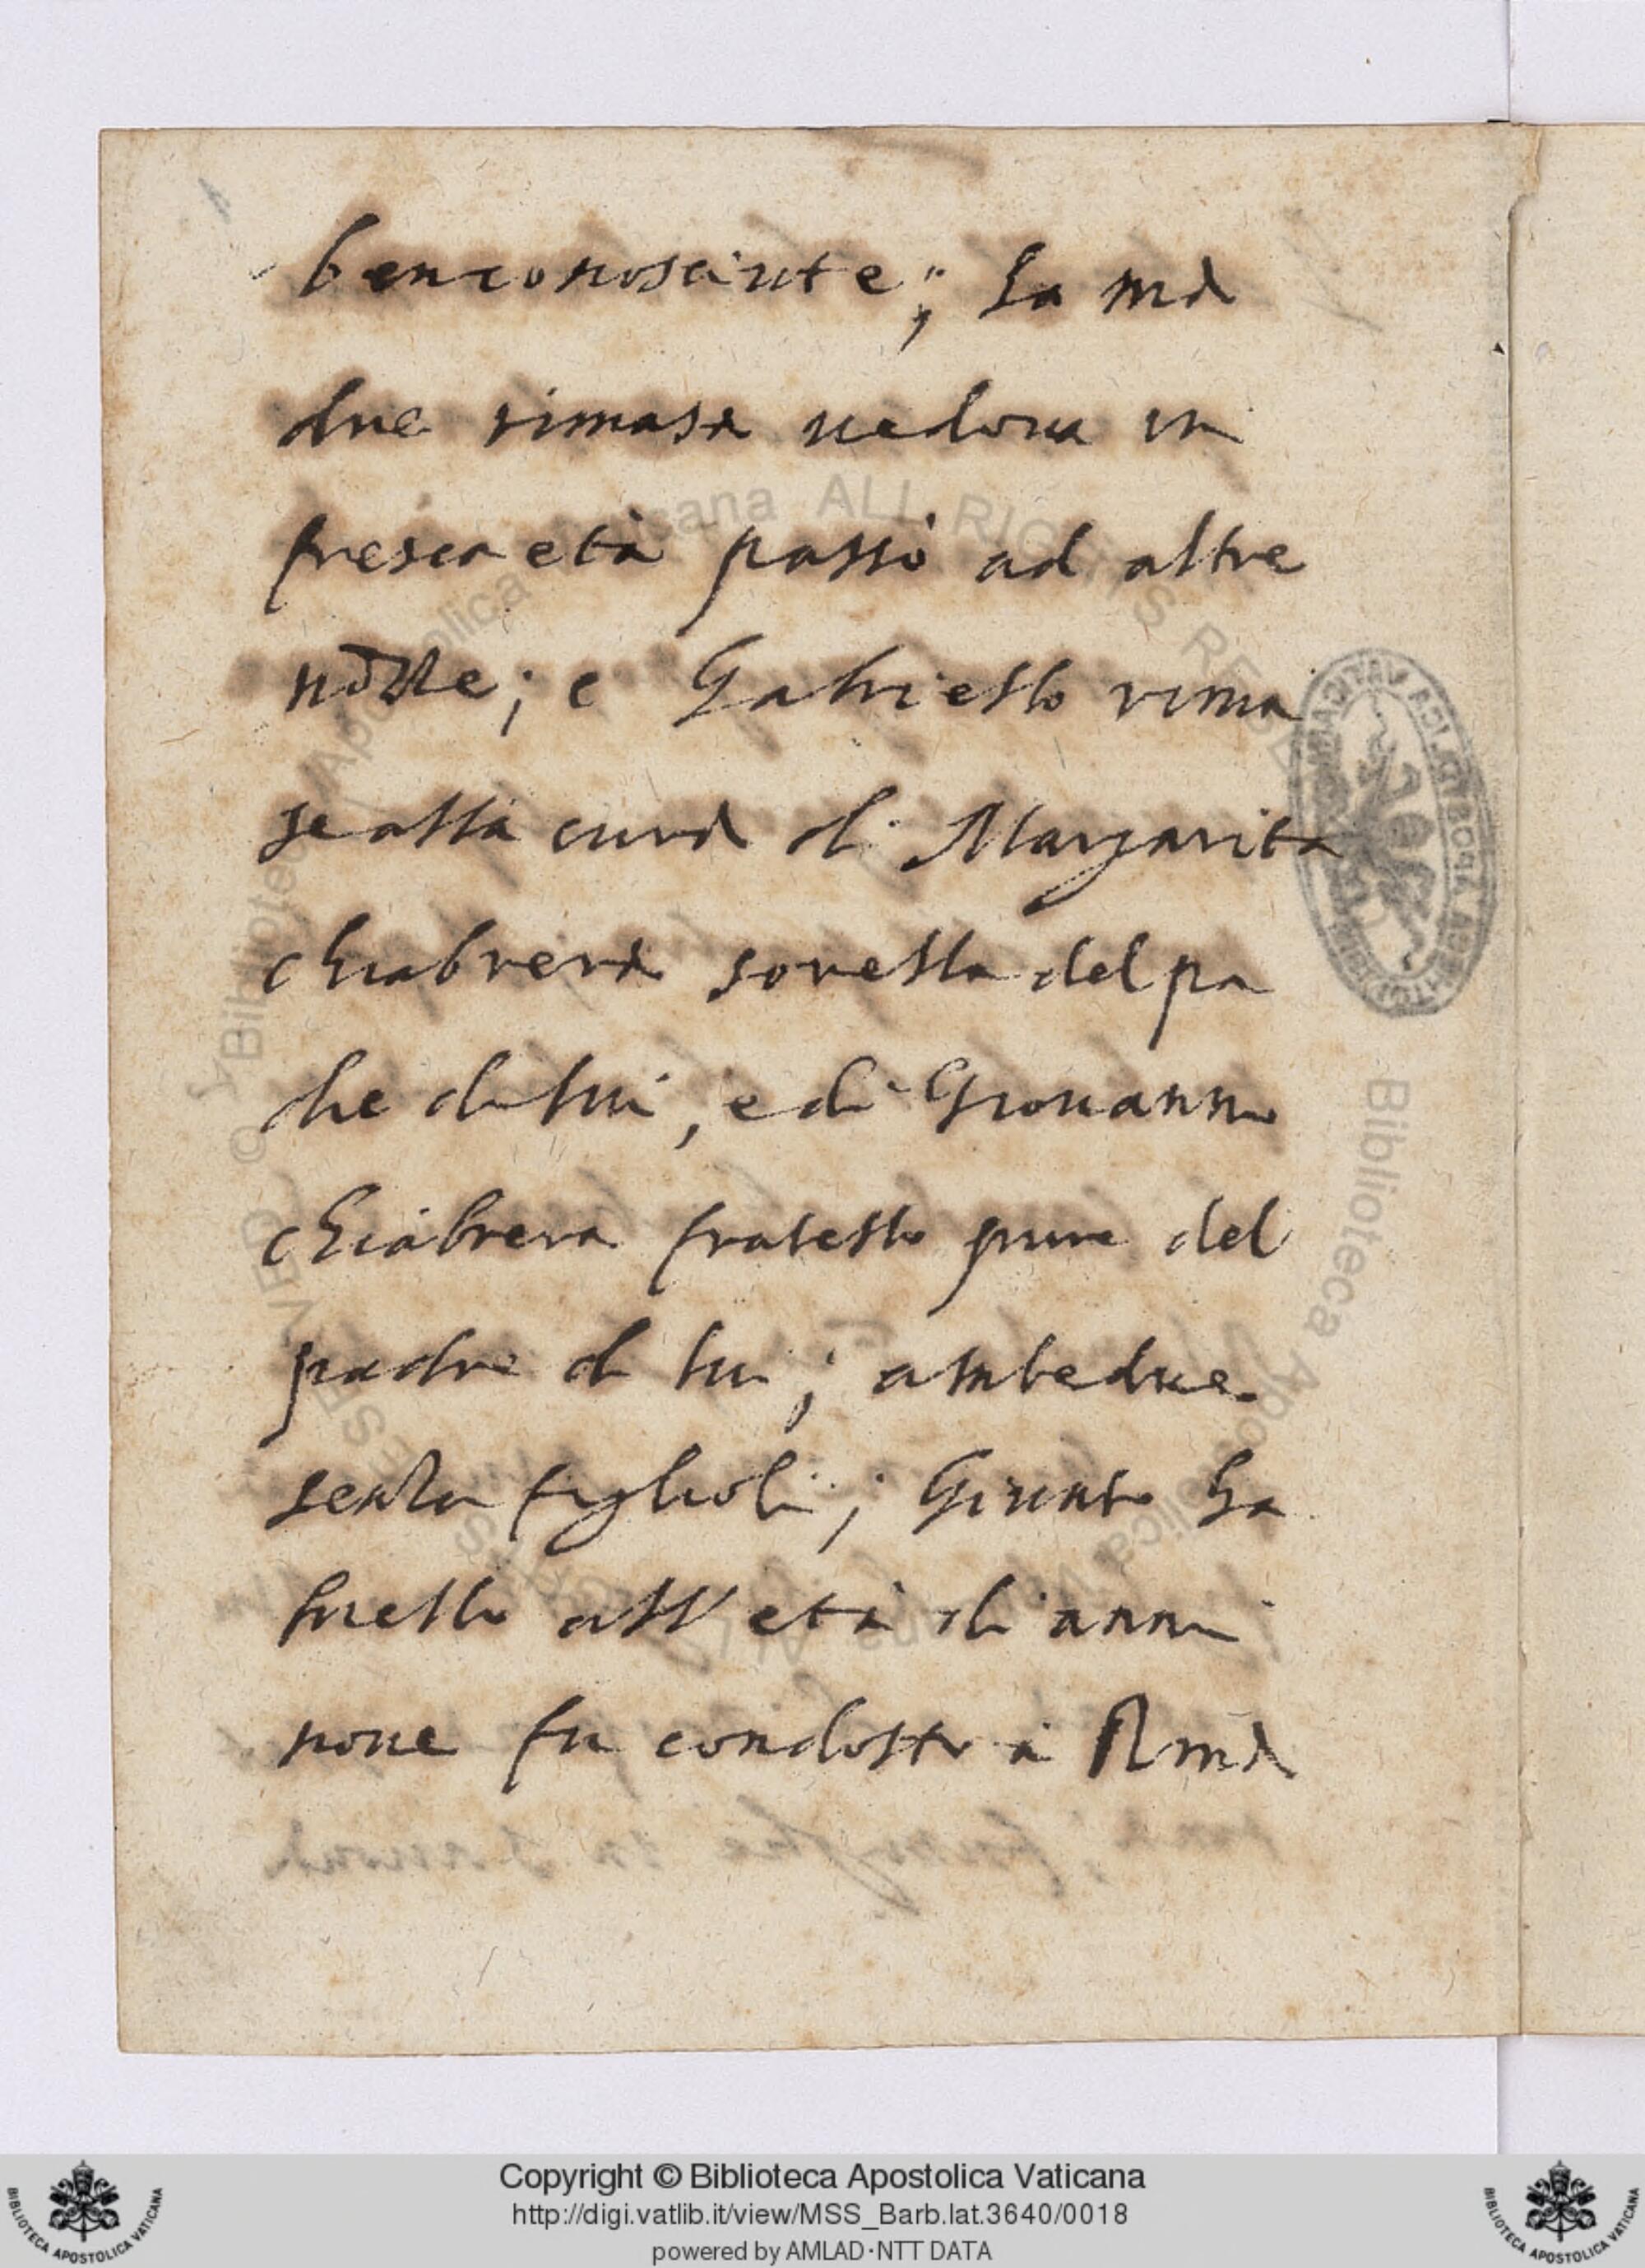 benconosciute; La ma
dre rimasa uedoua in
fresca età passò ad altre
nozze; e Gabriello rima
se alla cura di Margarita
chiabrera sorella del pa
dre di lui, e di Giouanni
chiabrera fratello pure del
padre di lui; ambedue
senza figliuoli; Giunto Ga
briello all' età di anni
noue fu condotto à Roma
Copyright © Biblioteca Apostolica Vaticana
http://digi.vatlib.it/view/MSS_Barb.lat.3640/0018
powered by AMLAD·NTT DATA
BIBLIOTECA APOSTOLICA VATICANA
BIBLIOTECA APOSTOLICA VATICANA